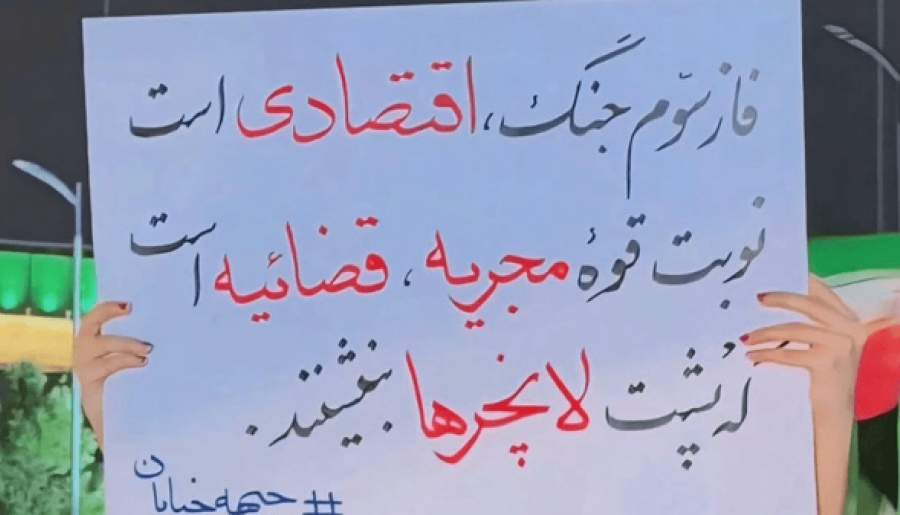 فاز سوّم جَنگ، اقتصادی است
نوبت قوهٔ مجریه، قضائیه است
که پشت لانچرها بنشینند.
#جبهه_خیابان